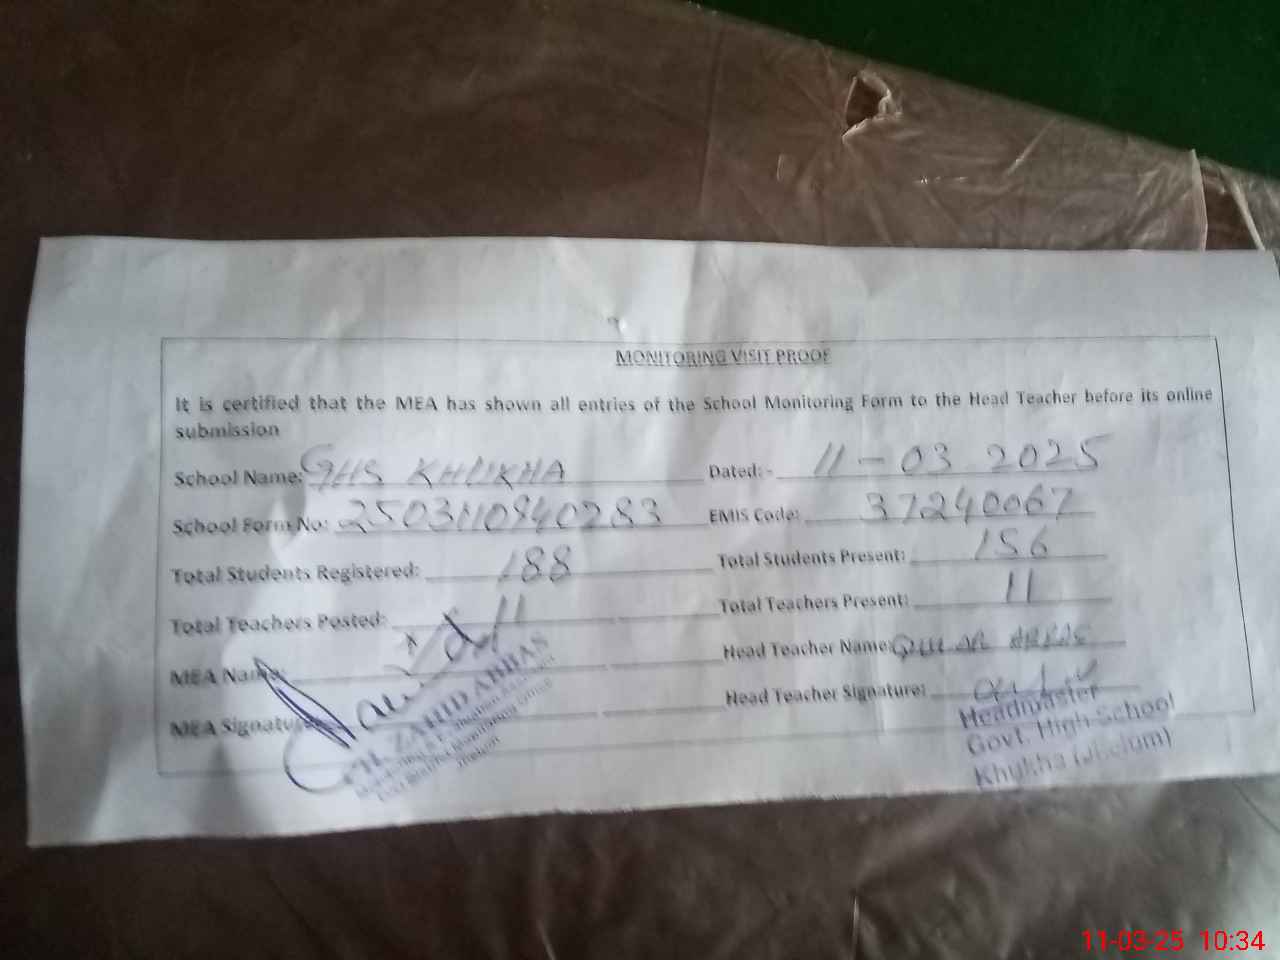 MONITORING VISIT PROOF
It is certified that the MEA has shown all entries of the School Monitoring Form to the Head Teacher before its online
submission
School Name: GHS KHUKHA Dated: - 11-03 2025
School Form No: 2503110940283 EMIS Code: 37240067
Total Students Registered: 188 Total Students Present: 156
Total Teachers Posted: 11 Total Teachers Present: 11
MEA Name: Head Teacher Name:
MEA Signature Head Teacher Signature:
ZAHID ABBAS
Headmaster
Govt. High School
Khukha (Jhelum)
11-03-25 10:34